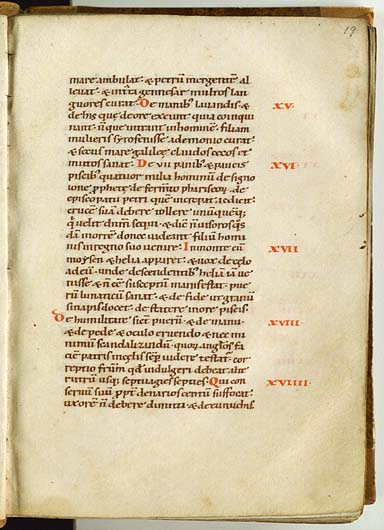 19
mare ambulat · & petrū mergentē al
leuat · & in t̄ra gennesar multos lan
guores curat · De manib; lauandis &
de his quę de ore exeunt quia coinqui
nant · n̄ que intrant in hominē · filiam
mulieris syrofenisse · a demonio curat ·
& secus mare galileę claudos cecos et
mutos sanat · De VII panib; & paucis
piscib; quatuor milia hominū de signo
ione pphetę de fermto phariseor̄ · de
episcopatu petri quē increpat · & dicit
crucem suā debere tollere unūquēq;
qui uelit dn̄m sequi · & dicē n̄ uisuros qs
dā mortē donec uideant filiū homi
nis in regno suo uenire · In monte cū
moysen & helia apparet · & uox de cęlo
ad eum · unde descendentib; heliā iā ue
nisse & n̄ cē susceptū manifestat · pue
rū lunaticū sanat · & de fide ut granū
sinapis docet · de statere in ore piscis ·
De humilitate sicē puerū · & de manu
& de pede & oculo eruendo & nec mi
nimū scandalizandū · quoꝝ angłos fa
ciē patris in cęlis sēp uidere testat̄ · cor
reptio fr̄um qd̄ indulgeri debeat alte
rutrū usq; septuagies septies · Qui con
seruū suū ꝓpt̄ denarios centū suffocat ·
uxorē n̄ debere dimitti · & de eunuchis ·
XV·
XVI
XVII
XVIII·
XVIIII·